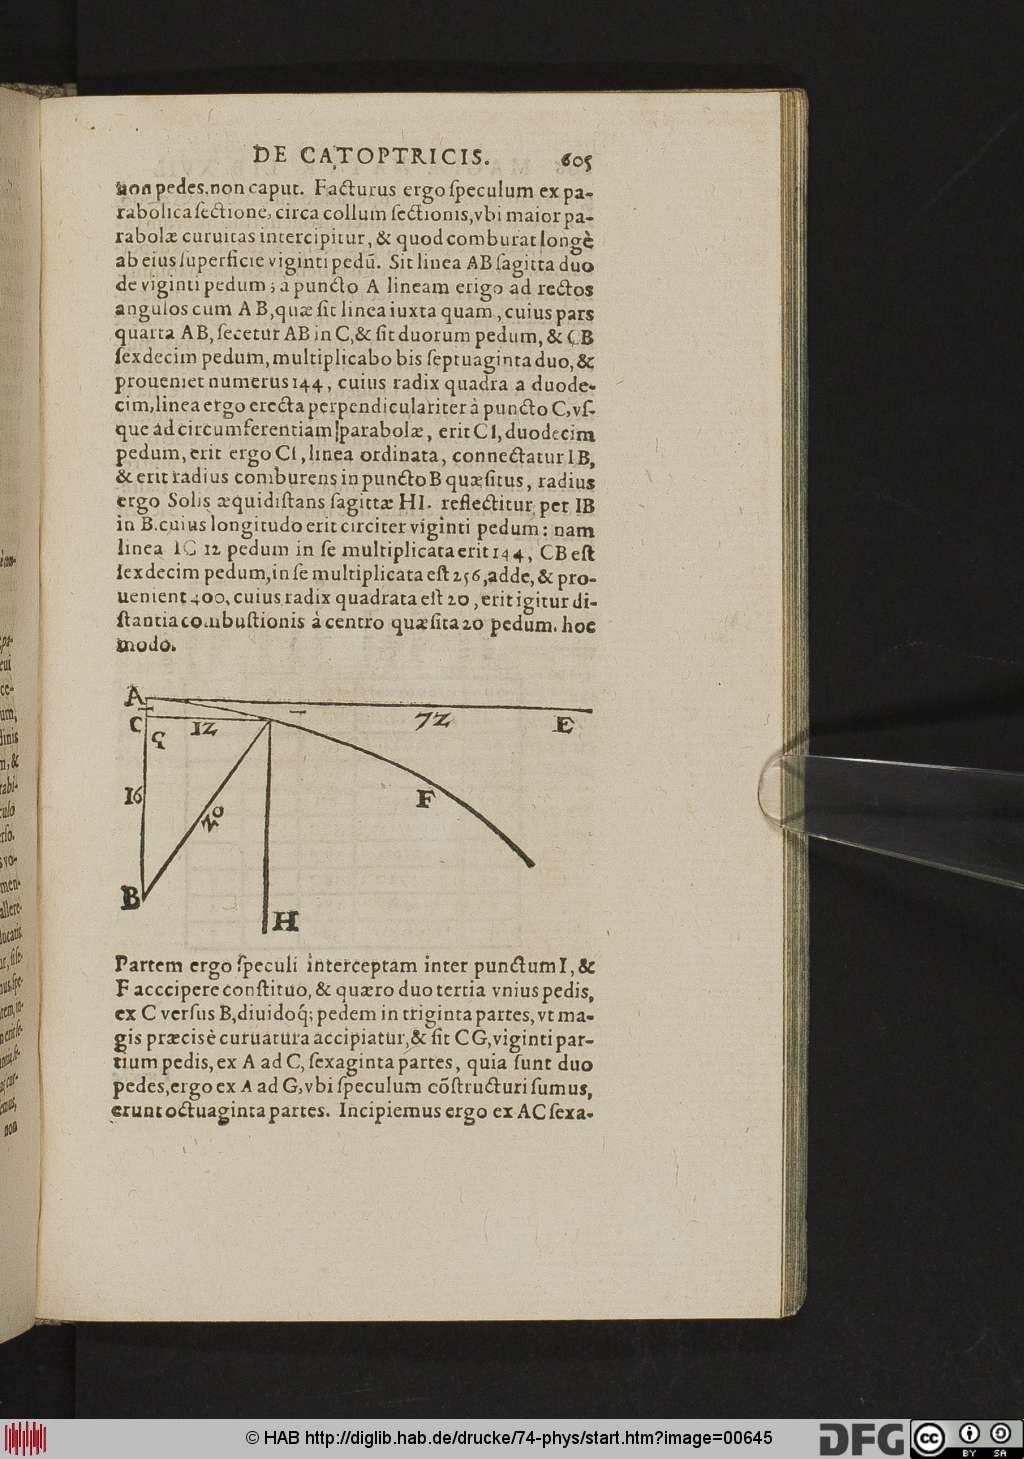 DE CATOPTRICIS. 605
non pedes, non caput. Facturus ergo ſpeculum ex pa-
rabolica ſectione, circa collum ſectionis, vbi maior pa-
rabolæ curuitas intercipitur, & quod comburat longè
ab eius ſuperficie viginti pedũ. Sit linea AB ſagitta duo
de viginti pedum; à puncto A lineam erigo ad rectos
angulos cum AB, quæ ſit linea iuxta quam, cuius pars
quarta AB, ſecetur AB in C, & ſit duorum pedum, & CB
ſexdecim pedum, multiplicabo bis ſeptuaginta duo, &
proueniet numerus 144, cuius radix quadra a duode-
cim, linea ergo erecta perpendiculariter à puncto C, vſ-
que ad circumferentiam parabolæ, erit CI, duodecim
pedum, erit ergo CI, linea ordinata, connectatur IB,
& erit radius comburens in puncto B quæſitus, radius
ergo Solis æquidiſtans ſagittæ HI. reflectitur per IB
in B. cuius longitudo erit circiter viginti pedum: nam
linea IC 12 pedum in ſe multiplicata erit 144, CB eſt
ſexdecim pedum, in ſe multiplicata eſt 256, adde, & pro-
uenient 400, cuius radix quadrata eſt 20, erit igitur di-
ſtantia combuſtionis à centro quæſita 20 pedum. hoc
modo.
A
C
G
12
72
E
16
20
F
B
H
Partem ergo ſpeculi interceptam inter punctum I, &
F acccipere conſtituo, & quæro duo tertia vnius pedis,
ex C verſus B, diuidoq́; pedem in triginta partes, vt ma-
gis præcisè curuatura accipiatur, & ſit CG, viginti par-
tium pedis, ex A ad C, ſexaginta partes, quia ſunt duo
pedes, ergo ex A ad G, vbi ſpeculum cõſtructuri ſumus,
erunt octuaginta partes. Incipiemus ergo ex AC ſexa-
non
© HAB http://diglib.hab.de/drucke/74-phys/start.htm?image=00645
DFG
cc
BY SA